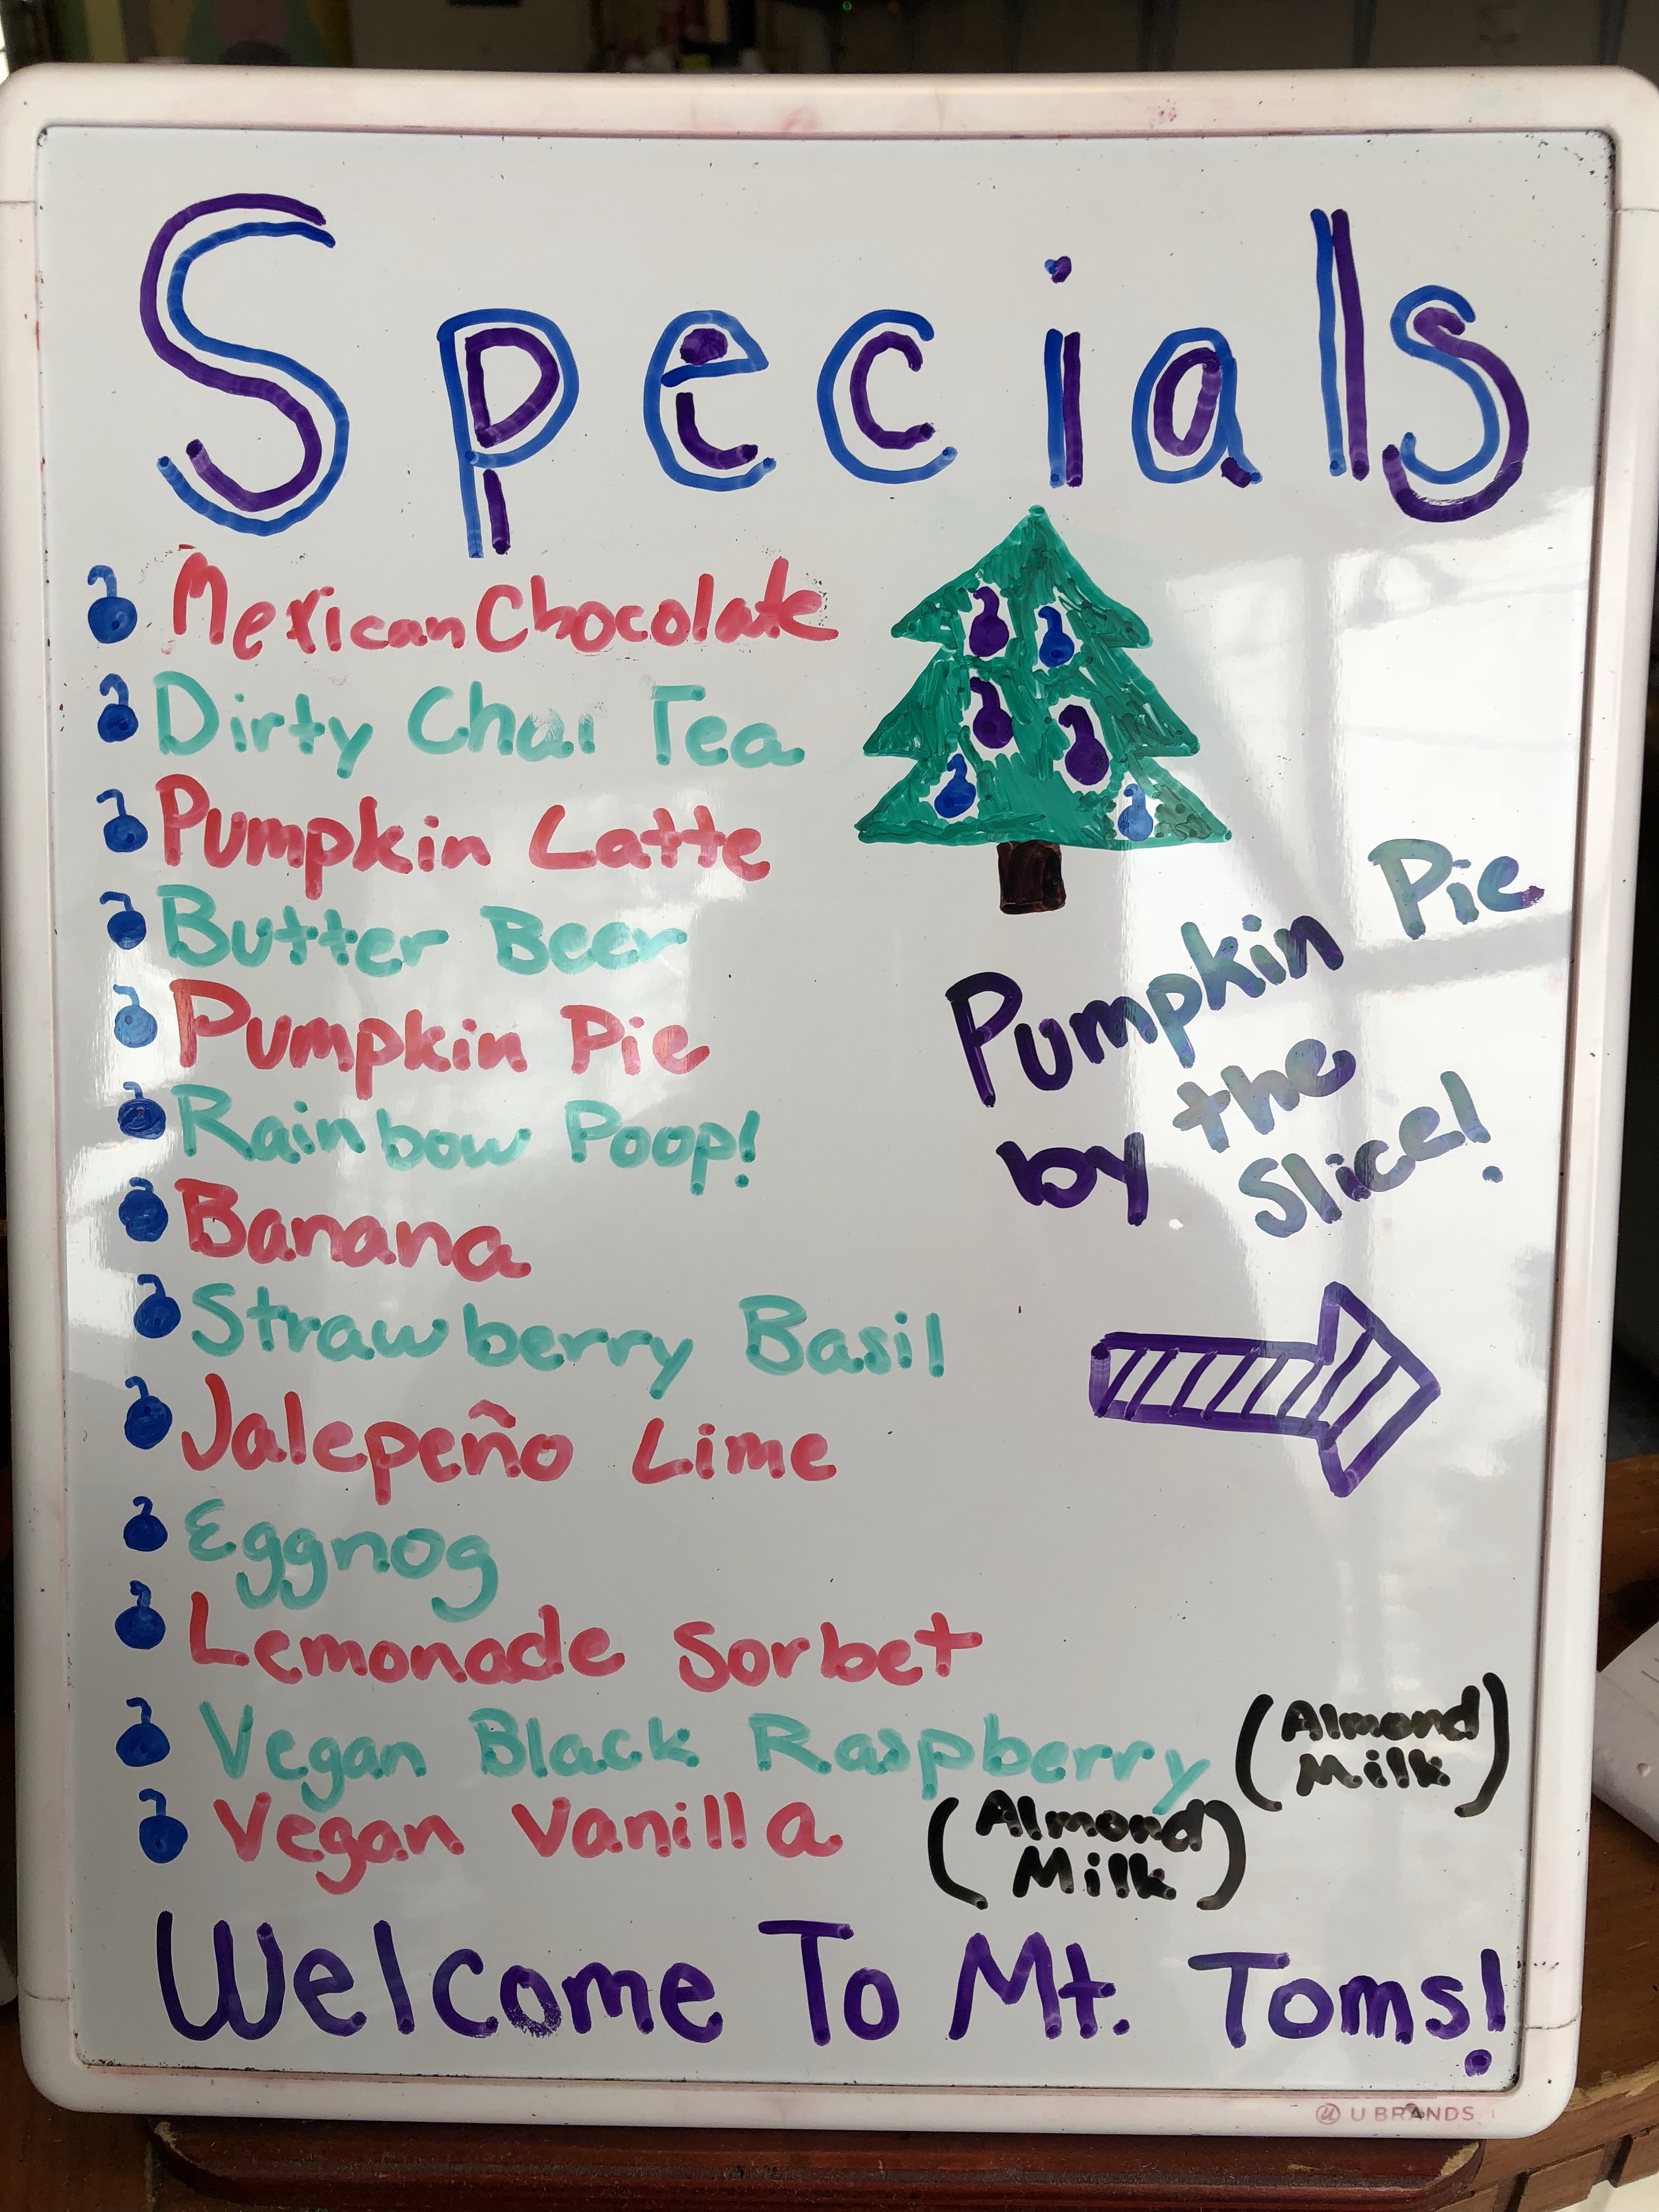 Specials
Mexican Chocolate
Dirty Chai Tea
Pumpkin Latte
Butter Beer
Pumpkin Pie
Rainbow Poop!
Banana
Strawberry Basil
Jalepeño Lime
Eggnog
Lemonade Sorbet
Vegan Black Raspberry (Almond
Milk)
Vegan Vanilla (Almond
Milk)
Pumpkin Pie
by the
Slice!
Welcome To Mt. Toms!
U BRANDS